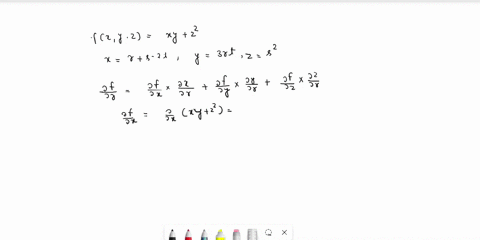 f(x, y, z) = xy + z²
x = r + s - 2t, y = 3rt, z = s²
∂f/∂r = ∂f/∂x × ∂x/∂r + ∂f/∂y × ∂y/∂r + ∂f/∂z × ∂z/∂r
∂f/∂x = ∂/∂x (xy + z²) =